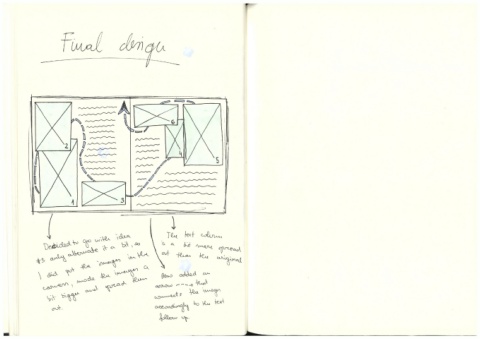 Final design
6
2
4
5
1
3
Decided to go with idea
#3 only alternate it a bit, so
I did put the images in the
corners, made the images a
bit bigger and spread them
out.
The text column
is a bit more spread
out than the original
Also added an
arrow that
connects the image
accordingly to the text
follow up